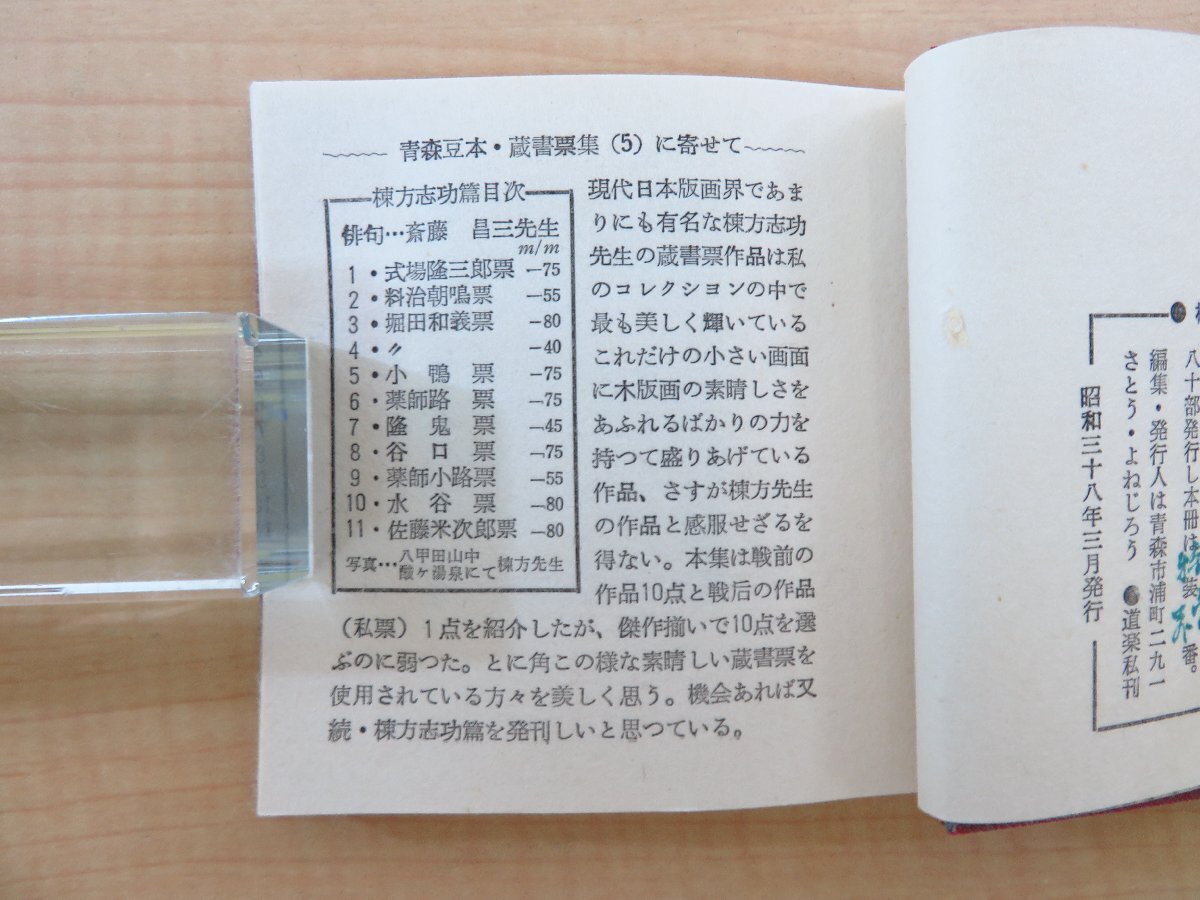 青森豆本・蔵書票集（5）に寄せて
棟方志功篇目次
俳句…斎藤　昌三先生
m/m
1・式場隆三郎票 −75
2・料治朝鳴票 −55
3・堀田和義票 −80
4・〃 −40
5・小鴨票 −75
6・薬師路票 −75
7・隆鬼票 −45
8・谷口票 −75
9・薬師小路票 −55
10・水谷票 −80
11・佐藤米次郎票 −80
写真…八甲田山中酸ヶ湯泉にて棟方先生
現代日本版画界であま
りにも有名な棟方志功
先生の蔵書票作品は私
のコレクションの中で
最も美しく輝いている
これだけの小さい画面
に木版画の素晴しさを
あふれるばかりの力を
持つて盛りあげている
作品、さすが棟方先生
の作品と感服せざるを
得ない。本集は戦前の
作品10点と戦后の作品
（私票）1点を紹介したが、傑作揃いで10点を選
ぶのに弱つた。とに角この様な素晴しい蔵書票を
使用されている方々を羨しく思う。機会あれば又
続・棟方志功篇を発刊しいと思つている。
八十部発行し本冊は
番。
編集・発行人は青森市浦町二九一
さとう・よねじろう ●道楽私刊
昭和三十八年三月発行